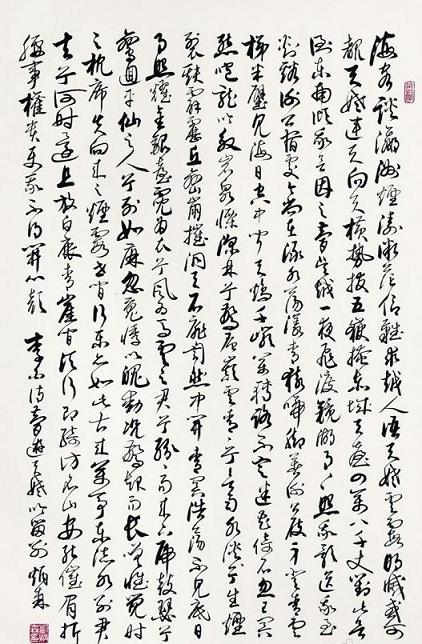 海客談瀛洲煙濤微茫信難求越人語天姥雲霓明滅或可
覩天姥連天向天橫勢拔五嶽掩赤城天台四萬八千丈對此欲
倒東南傾我欲因之夢吳越一夜飛渡鏡湖月湖月照我影送我至
剡溪謝公宿處今尚在淥水蕩漾清猿啼腳著謝公屐身登青雲
梯半壁見海日空中聞天鷄千巖萬轉路不定迷花倚石忽已暝
熊咆龍吟殷巖泉慄深林兮驚層巔雲青青兮欲雨水澹澹兮生煙
裂缺霹靂丘巒崩摧洞天石扉訇然中開青冥浩蕩不見底日
月照耀金銀臺霓爲衣兮風爲馬雲之君兮紛紛而來下虎鼓瑟兮
鸞回車仙之人兮列如麻忽魂悸以魄動怳驚起而長嗟惟覺時
之枕席失向來之煙霞世間行樂亦如此古來萬事東流水別君
去兮何時還且放白鹿青崖間須行即騎訪名山安能摧眉折
腰事權貴使我不得開心顏 李白詩夢遊天姥吟留別